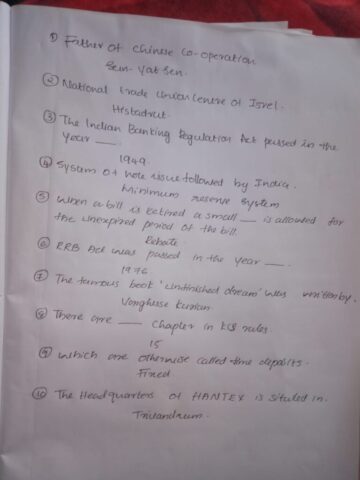 1) Father of Chinese Co-operation
Sun-Yat Sen.
2) National trade Union Centre of Isrel.
Histadrut.
3) The Indian Banking Regulation Act passed in the
year ___.
1949
4) System of note issue followed by India.
Minimum reserve system
5) When a bill is retired a small ___ is allowed for
the unexpired period of the bill.
Rebate
6) RRB Act was passed in the year ___.
1976
7) The famous book 'Unfinished dream' was written by.
Verghese Kurian.
8) There are ___ Chapter in KCS rules.
15
9) Which are otherwise called time deposits.
Fixed
10) The Headquarters of HANTEX is situted in.
Trivandrum.